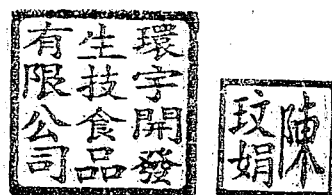 環宇開發
生技食品
有限公司
陳
玟娟